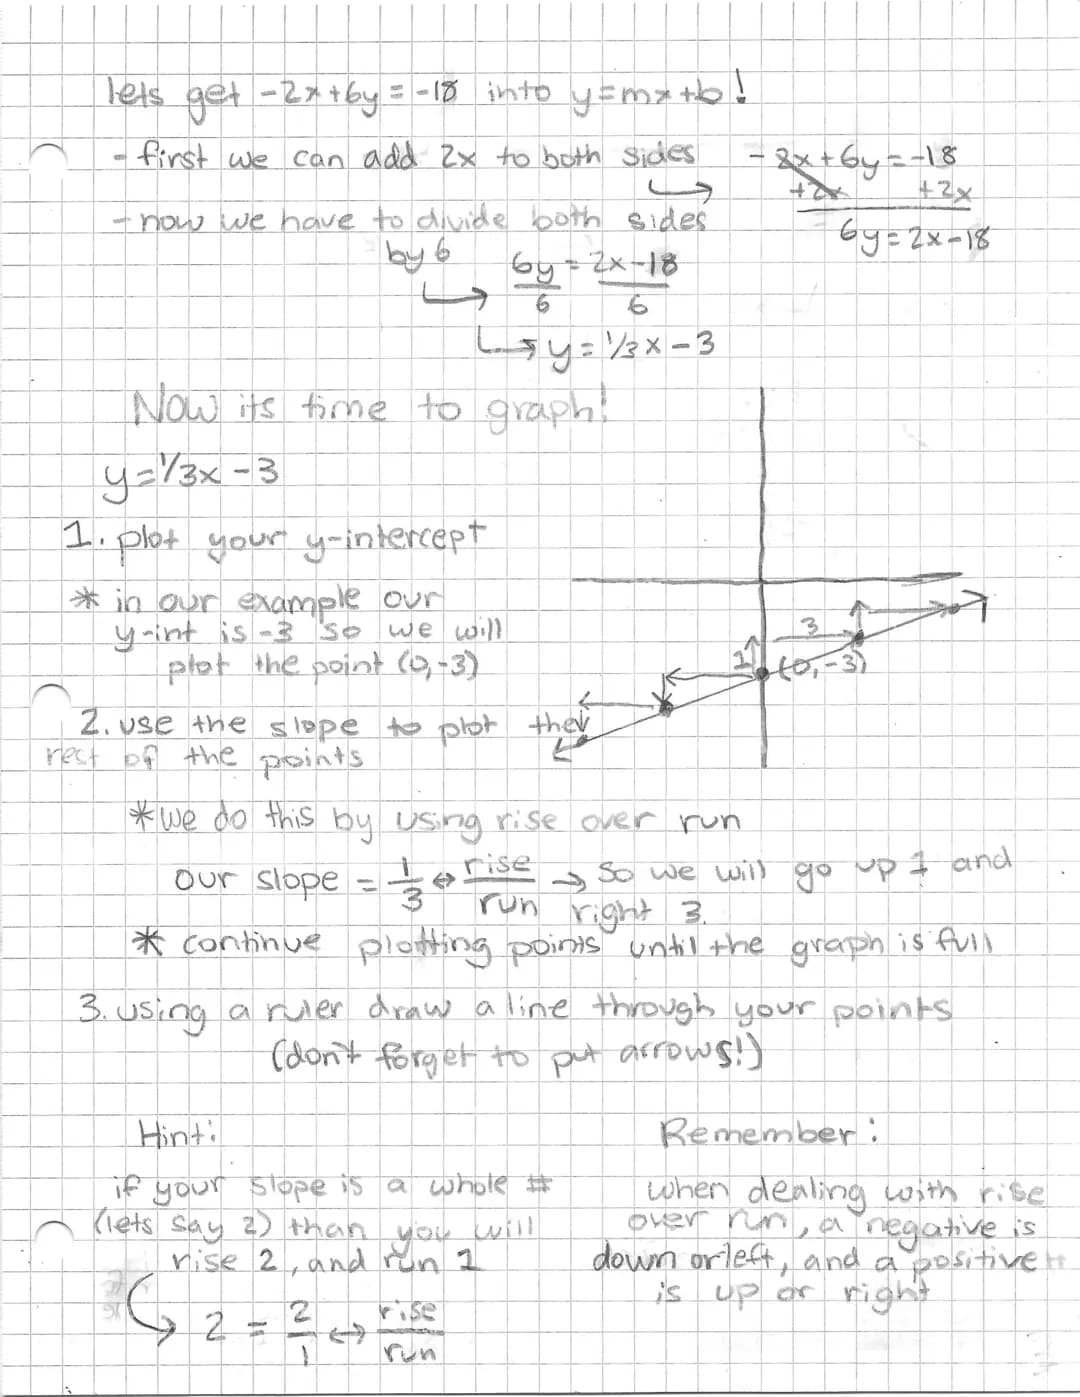 lets get -2x+6y = -18 into y=mx+b!
- first we can add 2x to both sides
-2x+6y=-18
+2x +2x
6y=2x-18
- now we have to divide both sides
by 6
6y = 2x-18
6 6
y = 1/3x - 3
Now its time to graph!
y=1/3x-3
1. plot your y-intercept
* in our example our
y-int is -3 so we will
plot the point (0,-3)
3
1 (0,-3)
2. use the slope to plot the
rest of the points
* we do this by using rise over run
our slope = 1/3 ↔ rise/run → So we will go up 1 and
right 3.
* continue plotting points until the graph is full
3. using a ruler draw a line through your points
(don't forget to put arrows!)
Hint:
if your slope is a whole #
(lets say 2) than you will
rise 2, and run 1
2 = 2/1 ↔ rise/run
Remember:
when dealing with rise
over run, a negative is
down or left, and a positive
is up or right